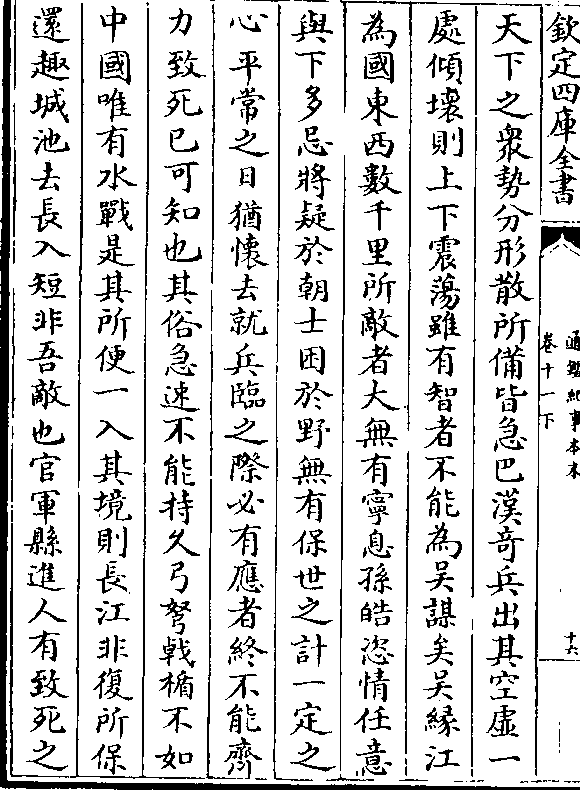 欽定四庫全書
通鑑紀事本末
卷十一下
十六
天下之衆勢分形散所備皆急巴漢奇兵出其空虛一
處傾壞則上下震蕩雖有智者不能為吳謀矣吳緣江
為國東西數千里所敵者大無有寧息孫皓恣情任意
與下多忌將疑於朝士困於野無有保世之計一定之
心平常之日猶懷去就兵臨之際必有應者終不能齊
力致死已可知也其俗急速不能持久弓弩戟楯不如
中國唯有水戰是其所便一入其境則長江非復所保
還趣城池去長入短非吾敵也官軍縣進人有致死之